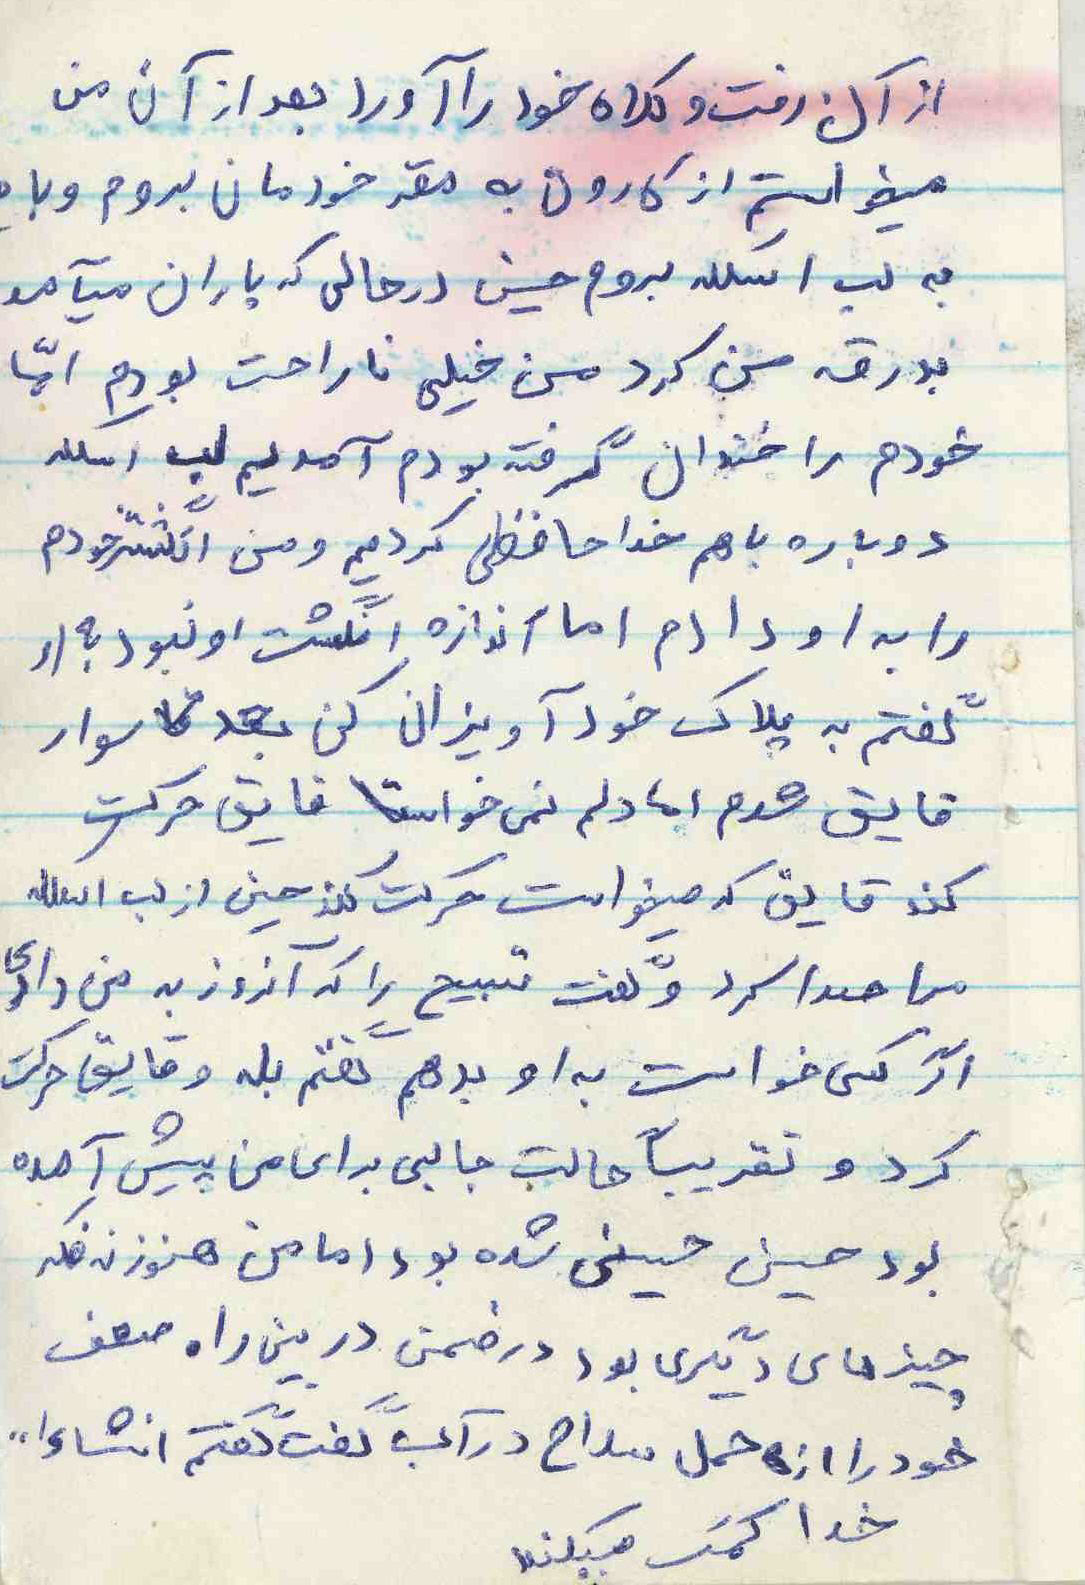 از آن رفت و کلاه خود را آورد بعد از آن من
میخواستم از کارون به مقر خودمان بروم و باید
به لب اسکله بروم حسین در حالی که باران میآمد
بدرقه من کرد من خیلی ناراحت بودم امّا
خودم را خندان گرفته بودم آمدیم لب اسکله
دوباره باهم خداحافظی کردیم و من انگشتر خودم
را به او دادم اما اندازه انگشت او نبود به او
گفتم به پلاک خود آویزان کن بعد سوار
قایق شدم اما دلم نمی خواست قایق حرکت
کند قایق که میخواست حرکت کند حسین از لب اسکله
مرا صدا کرد و گفت تسبیح را که آنروز به من دادی
اگر کسی خواست به او بدهم گفتم بله و قایق حرکت
کرد و تقریباً حالت جالبی برای من پیش آمده
بود حسین حسینی شده بود اما من هنوز نه فکر
چیزهای دیگری بود در ضمن در بین راه ضعف
خود را از حمل سلاح در آب گفت گفتم انشاءا..
خدا کمک میکند